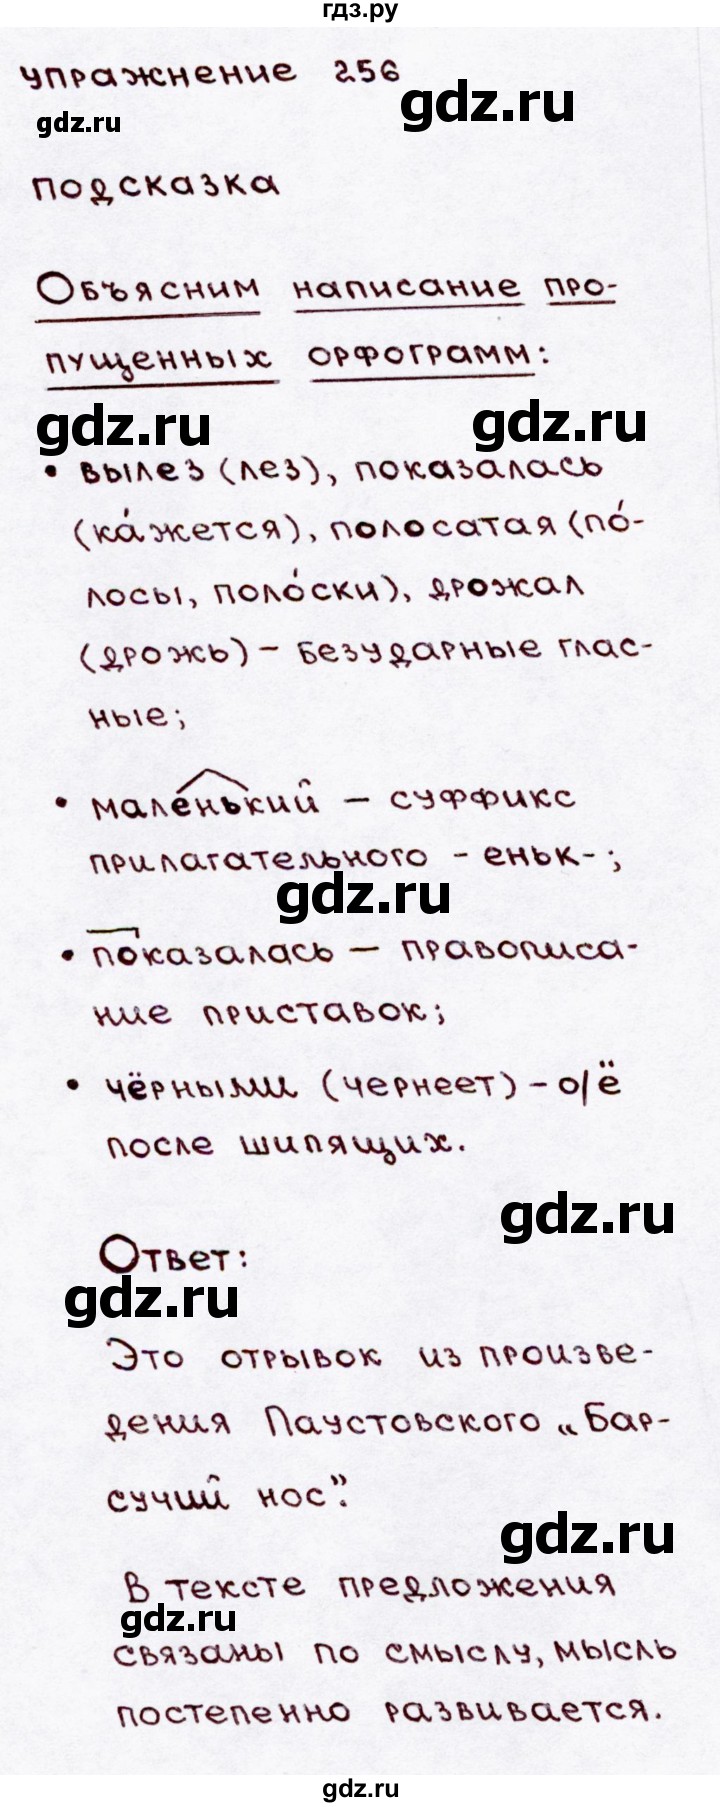 гдз.ру
упражнение 256
gdz.ru
gdz.ru
подсказка
Объясним написание про-
пущенных орфограмм:
gdz.ru
gdz.ru
• вылез (лез), показалась
(ка́жется), полосатая (по́-
лосы, поло́ски), дрожал
(дрожь) – безударные глас-
ные;
• маленький – суффикс
прилагательного -еньк-;
gdz.ru
• показалась – правописа-
ние приставок;
• чёрными (чернеет) – о/ё
после шипящих.
gdz.ru
Ответ:
gdz.ru
Это отрывок из произве-
дения Паустовского „Бар-
сучий нос".
gdz.ru
В тексте предложения
gdz.ru
связаны по смыслу, мысль
постепенно развивается.
gdz.ru